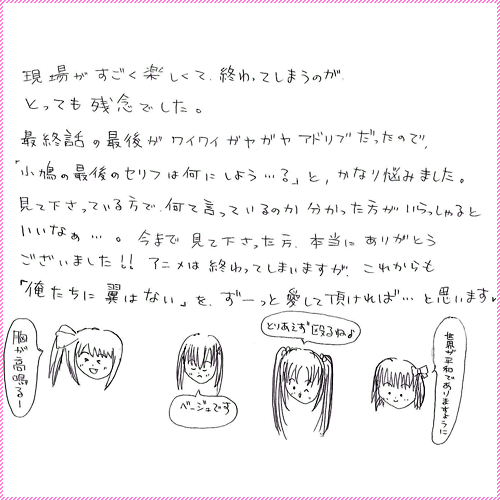 現場がすごく楽しくて、終わってしまうのが、
とっても残念でした。
最終話の最後がワイワイガヤガヤアドリブだったので、
「小鳩の最後のセリフは何にしよう…る」と、かなり悩みました。
見て下さっている方で、何て言っているのか分かった方がいらっしゃると
いいなぁ…。今まで見て下さった方、本当にありがとう
ございました!!アニメは終わってしまいますが、これからも
「俺たちに翼はない」を、ずーっと愛して頂ければ…と思います。
胸が高鳴るー
ベージュです
とりあえず殴るねっ♪
世界が平和でありますように